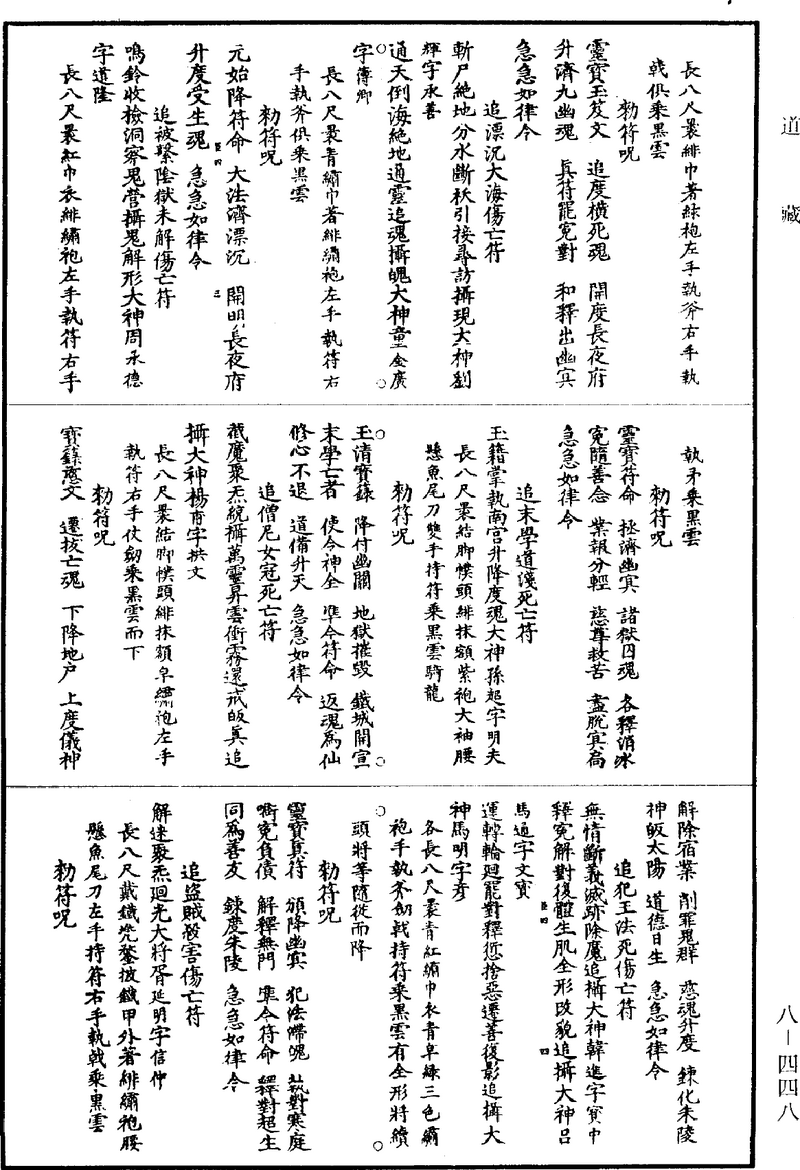 道藏
長八尺裹緋巾著綠袍左手執斧右手執
戟俱乘黑雲
勑符呪
靈寶玉笈文　追度橫死魂　開度長夜府
升濟九幽魂　真符罷冤對　和釋出幽冥
急急如律令
追漂沉大海傷亡符
斬尸絶地分水斷袄引接尋訪攝現大神劉
輝字永善
通天倒海絶地通靈追魂攝魄大神童全廣
字傳卿
長八尺裹青繡巾著緋繡袍左手執符右
手執斧俱乘黑雲
勑符呪
元始降符命　大法濟漂沉　開明長夜府
升度受生魂　急急如律令
追被繫陰獄未解傷亡符
鳴鈴收檢洞察鬼營攝鬼解形大神周承德
字道隆
長八尺裹紅巾衣緋繡袍左手執符右手
執矛乘黑雲
勑符呪
靈寶符命　拯濟幽冥　諸獄囚魂　各釋消冰
冤隨善念　業報分輕　慈尊救苦　盡脫冥扃
急急如律令
追末學道淺死亡符
玉籍掌執南宮升降度魂大神孫超字明夫
長八尺裹結脚幞頭緋抹額紫袍大袖腰
懸魚尾刀雙手持符乘黑雲騎龍
勑符呪
玉清寶籙　降付幽關　地獄摧毀　鐵城開宣
末學亡者　使令神全　準令符命　返魂爲仙
修心不退　道備升天　急急如律令
追僧尼女冠死亡符
截魔聚炁統攝萬靈昇雲衝霧還戒皈真追
攝大神楊宵字拱文
長八尺裹結脚幞頭緋抹額皁繡袍左手
執符右手仗劒乘黑雲而下
勑符呪
寶籙慈文　遷拔亡魂　下降地戶　上度儀神
解除宿業　削罪鬼群　慈魂升度　鍊化朱陵
神皈太陽　道德日生　急急如律令
追犯王法死傷亡符
無情斷義滅跡除魔追攝大神韓進字寶中
釋冤解對復體生肌全形改貌追攝大神呂
馬通字文寶
運轉輪廻罷對釋愆捨惡遷善復影追攝大
神馬明字彥
各長八尺裹青紅繡巾衣青皁綠三色繡
袍手執斧劒戟持符乘黑雲有全形將續
頭將等隨從而降
勑符呪
靈寶真符　頒降幽冥　犯法滯魄　執對寒庭
啣冤負債　解釋無門　準令符命　釋對超生
同爲善友　鍊度朱陵　急急如律令
追盜賊殺害傷亡符
解迷聚炁廻光大將胥延明字信仲
長八尺戴鐵兠鍪披鐵甲外著緋繡袍腰
懸魚尾刀左手持符右手執戟乘黑雲
勑符呪
八－四四八